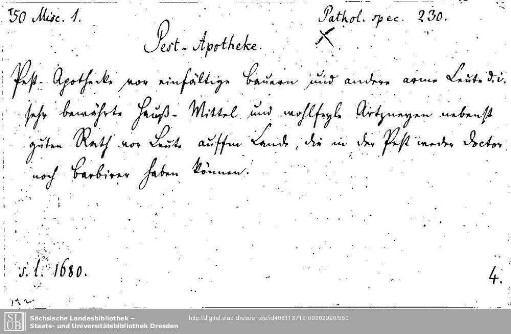 50 Misc. 1. Pathol. spec. 230.
Pest-Apotheke
Pest-Apothecke vor einfältige Bauern und andere arme Leute d. i.
sehr bewährte Hauß-Mittel und wohlfeyle Artzneyen nebenst
guten Rath vor Leute auffm Lande, die in der Pest weder Doctor
noch Barbirer haben können.
s. l. 1680. 4.
Sächsische Landesbibliothek –
Staats- und Universitätsbibliothek Dresden